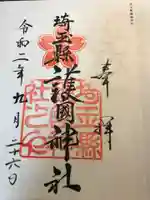 奉拝
埼玉縣
護國神社
令和二年九月二十六日